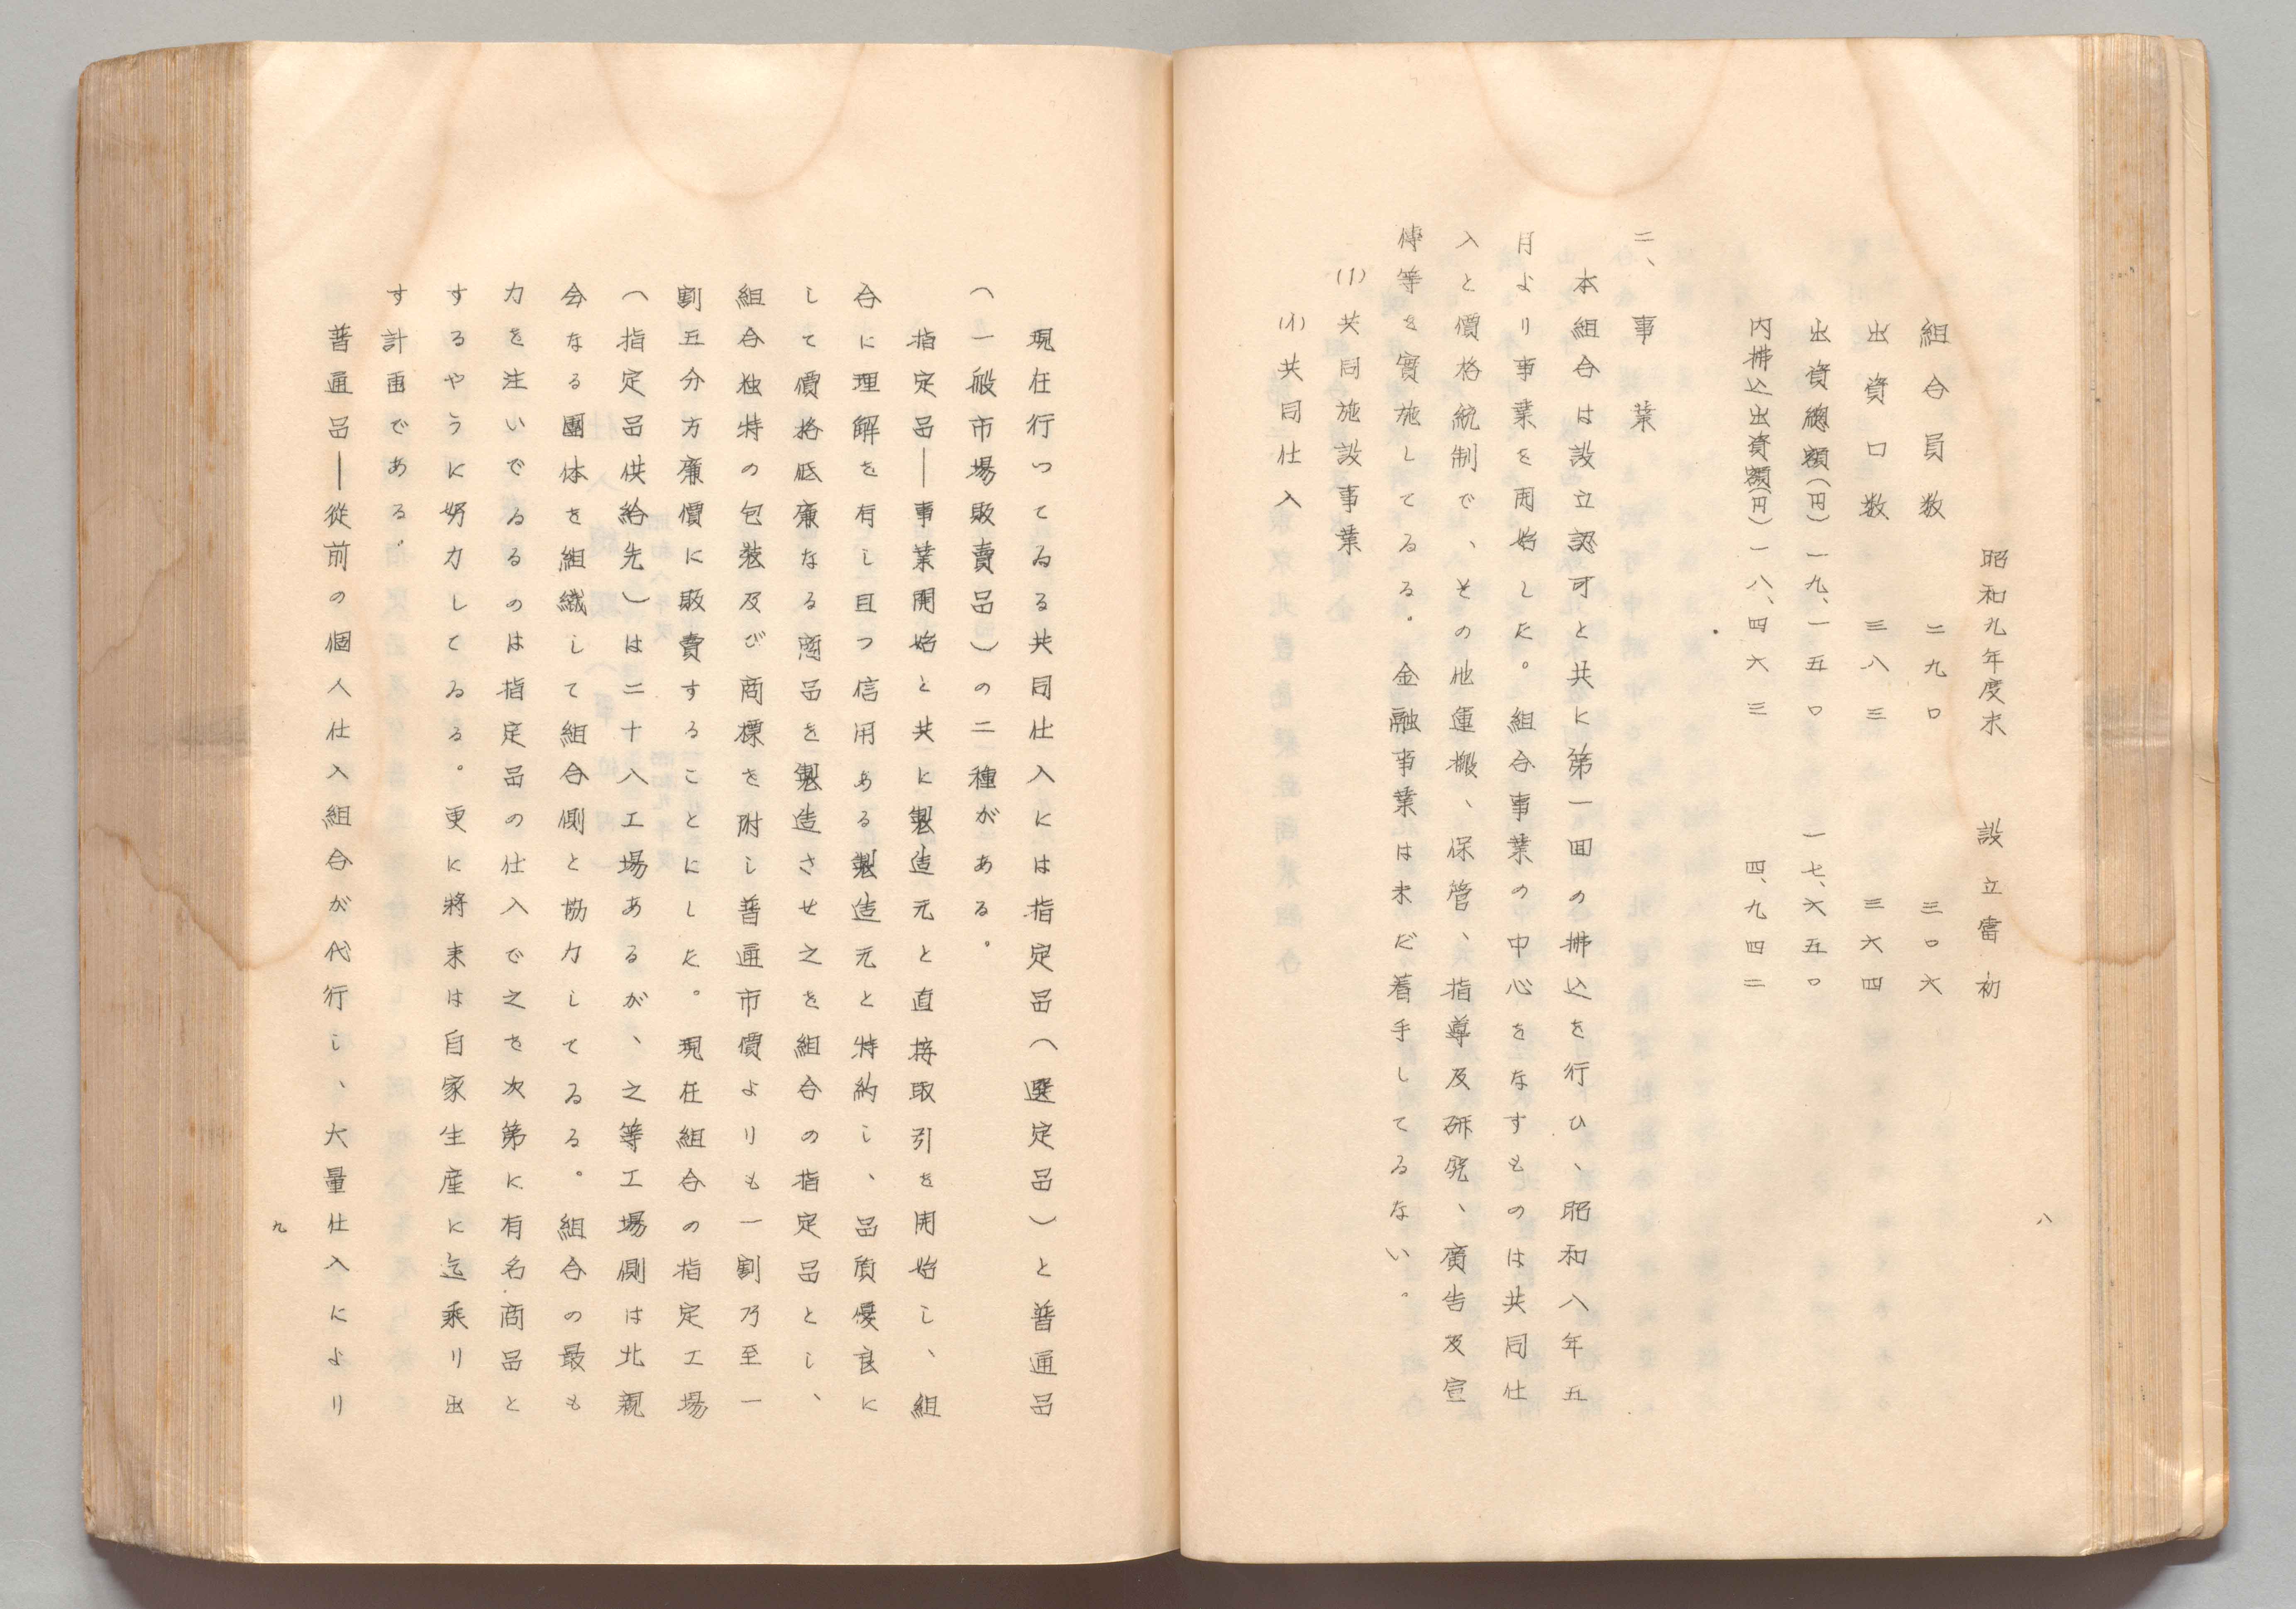 八
昭和九年度末　設立當初
組合員数　二九〇　三〇六
出資口数　三八三　三六四
出資總額(円)　一九、一五〇　一七、六五〇
内拂込出資額(円)　一八、四六三　四、九四二
二、事業
本組合は設立認可と共に第一囬の拂込を行ひ、昭和八年五
月より事業を開始した。組合事業の中心をなすものは共同仕
入と價格統制で、その他運搬、保管、指導及研究、廣告及宣
傳等を實施してゐる。金融事業は未だ着手してゐない。
(1)共同施設事業
(イ)共同仕入
現在行つてゐる共同仕入には指定品(選定品)と普通品
(一般市場販賣品)の二種がある。
指定品―事業開始と共に製造元と直接取引を開始し、組
合に理解を有し且つ信用ある製造元と特約し、品質優良に
して價格低廉なる商品を製造させ之を組合の指定品とし、
組合独特の包装及び商標を附し普通市價よりも一割乃至一
割五分方廉價に販賣することにした。現在組合の指定工場
(指定品供給先)は二十八工場あるが、之等工場側は北親
会なる團体を組織して組合側と協力してゐる。組合の最も
力を注いでゐるのは指定品の仕入で之を次第に有名商品と
するやうに努力してゐる。更に將来は自家生産に迄乘り出
す計画である。
普通品―從前の個人仕入組合が代行し、大量仕入により
九